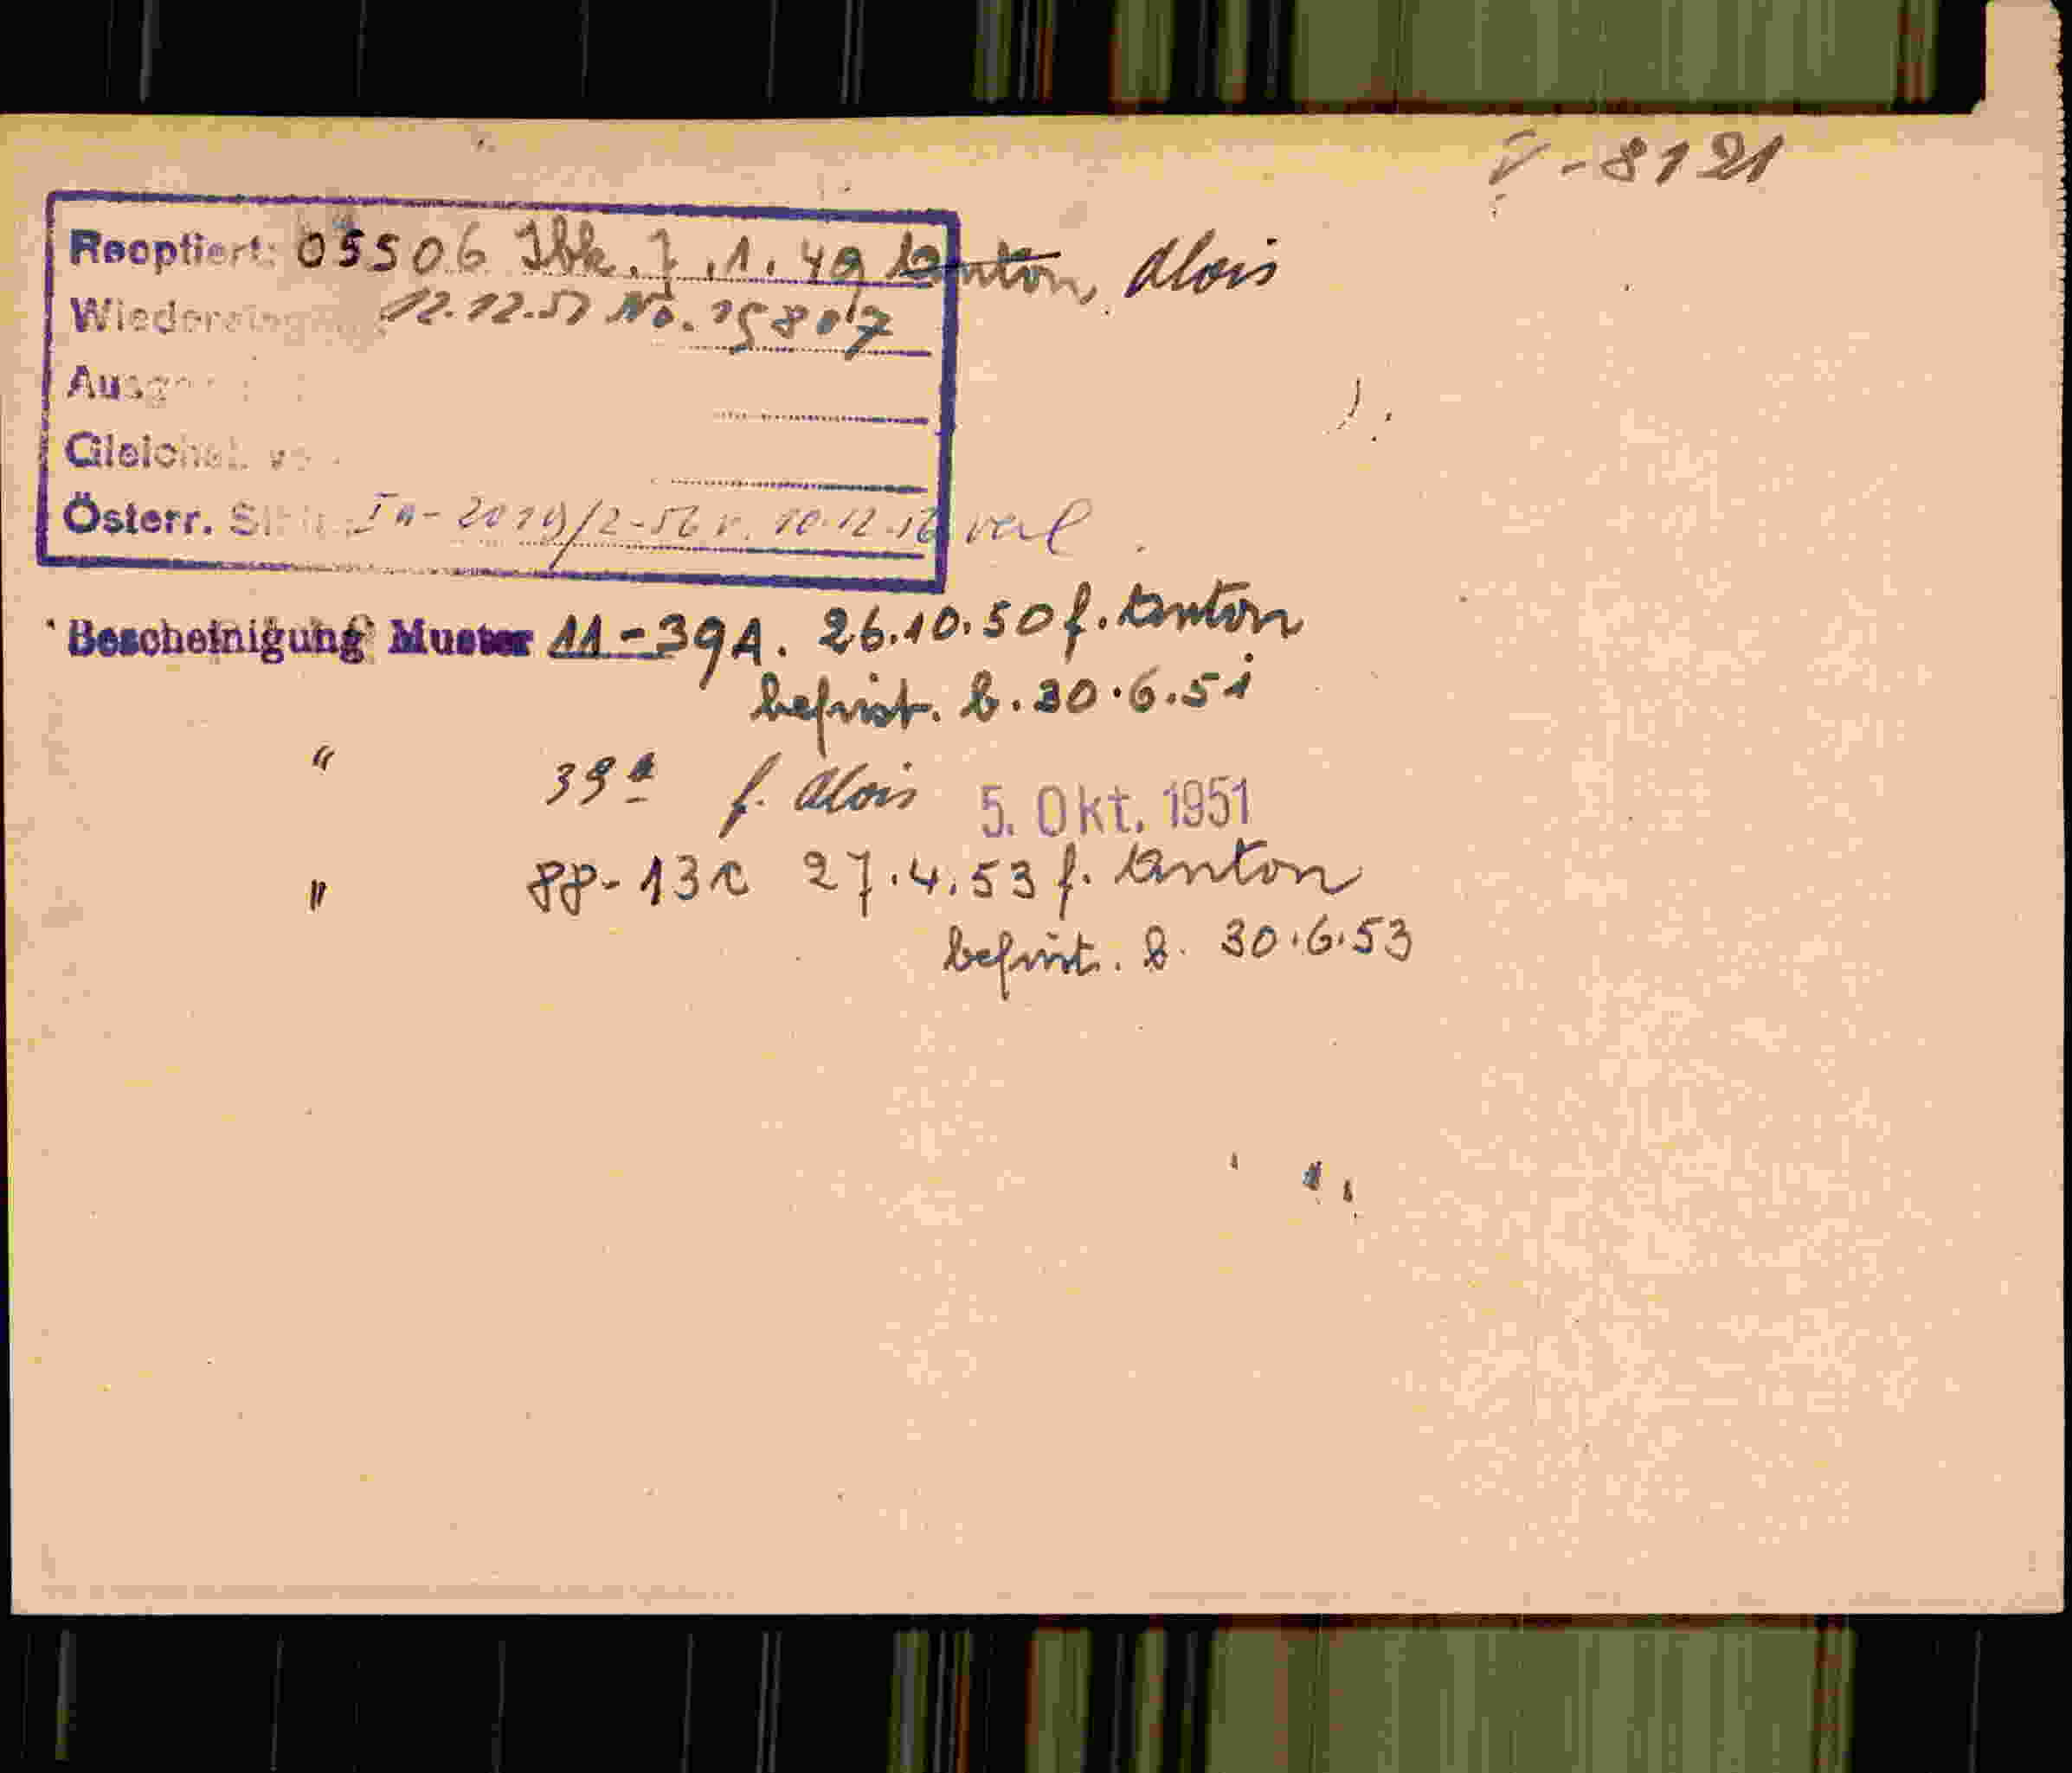 -8121
Reoptiert: 05506 Ibk. 7.1.49 Anton, Alois
12.12.51 No. 15807
Österr. Ia-2019/2-56 v. 10.12.56 verl
Bescheinigung Muster 11-39A. 26.10.50 f. Anton
befrist. b. 30.6.51
" 39a f. Alois 5. Okt. 1951
" 88-13c 27.4.53 f. Anton
befrist. b. 30.6.53